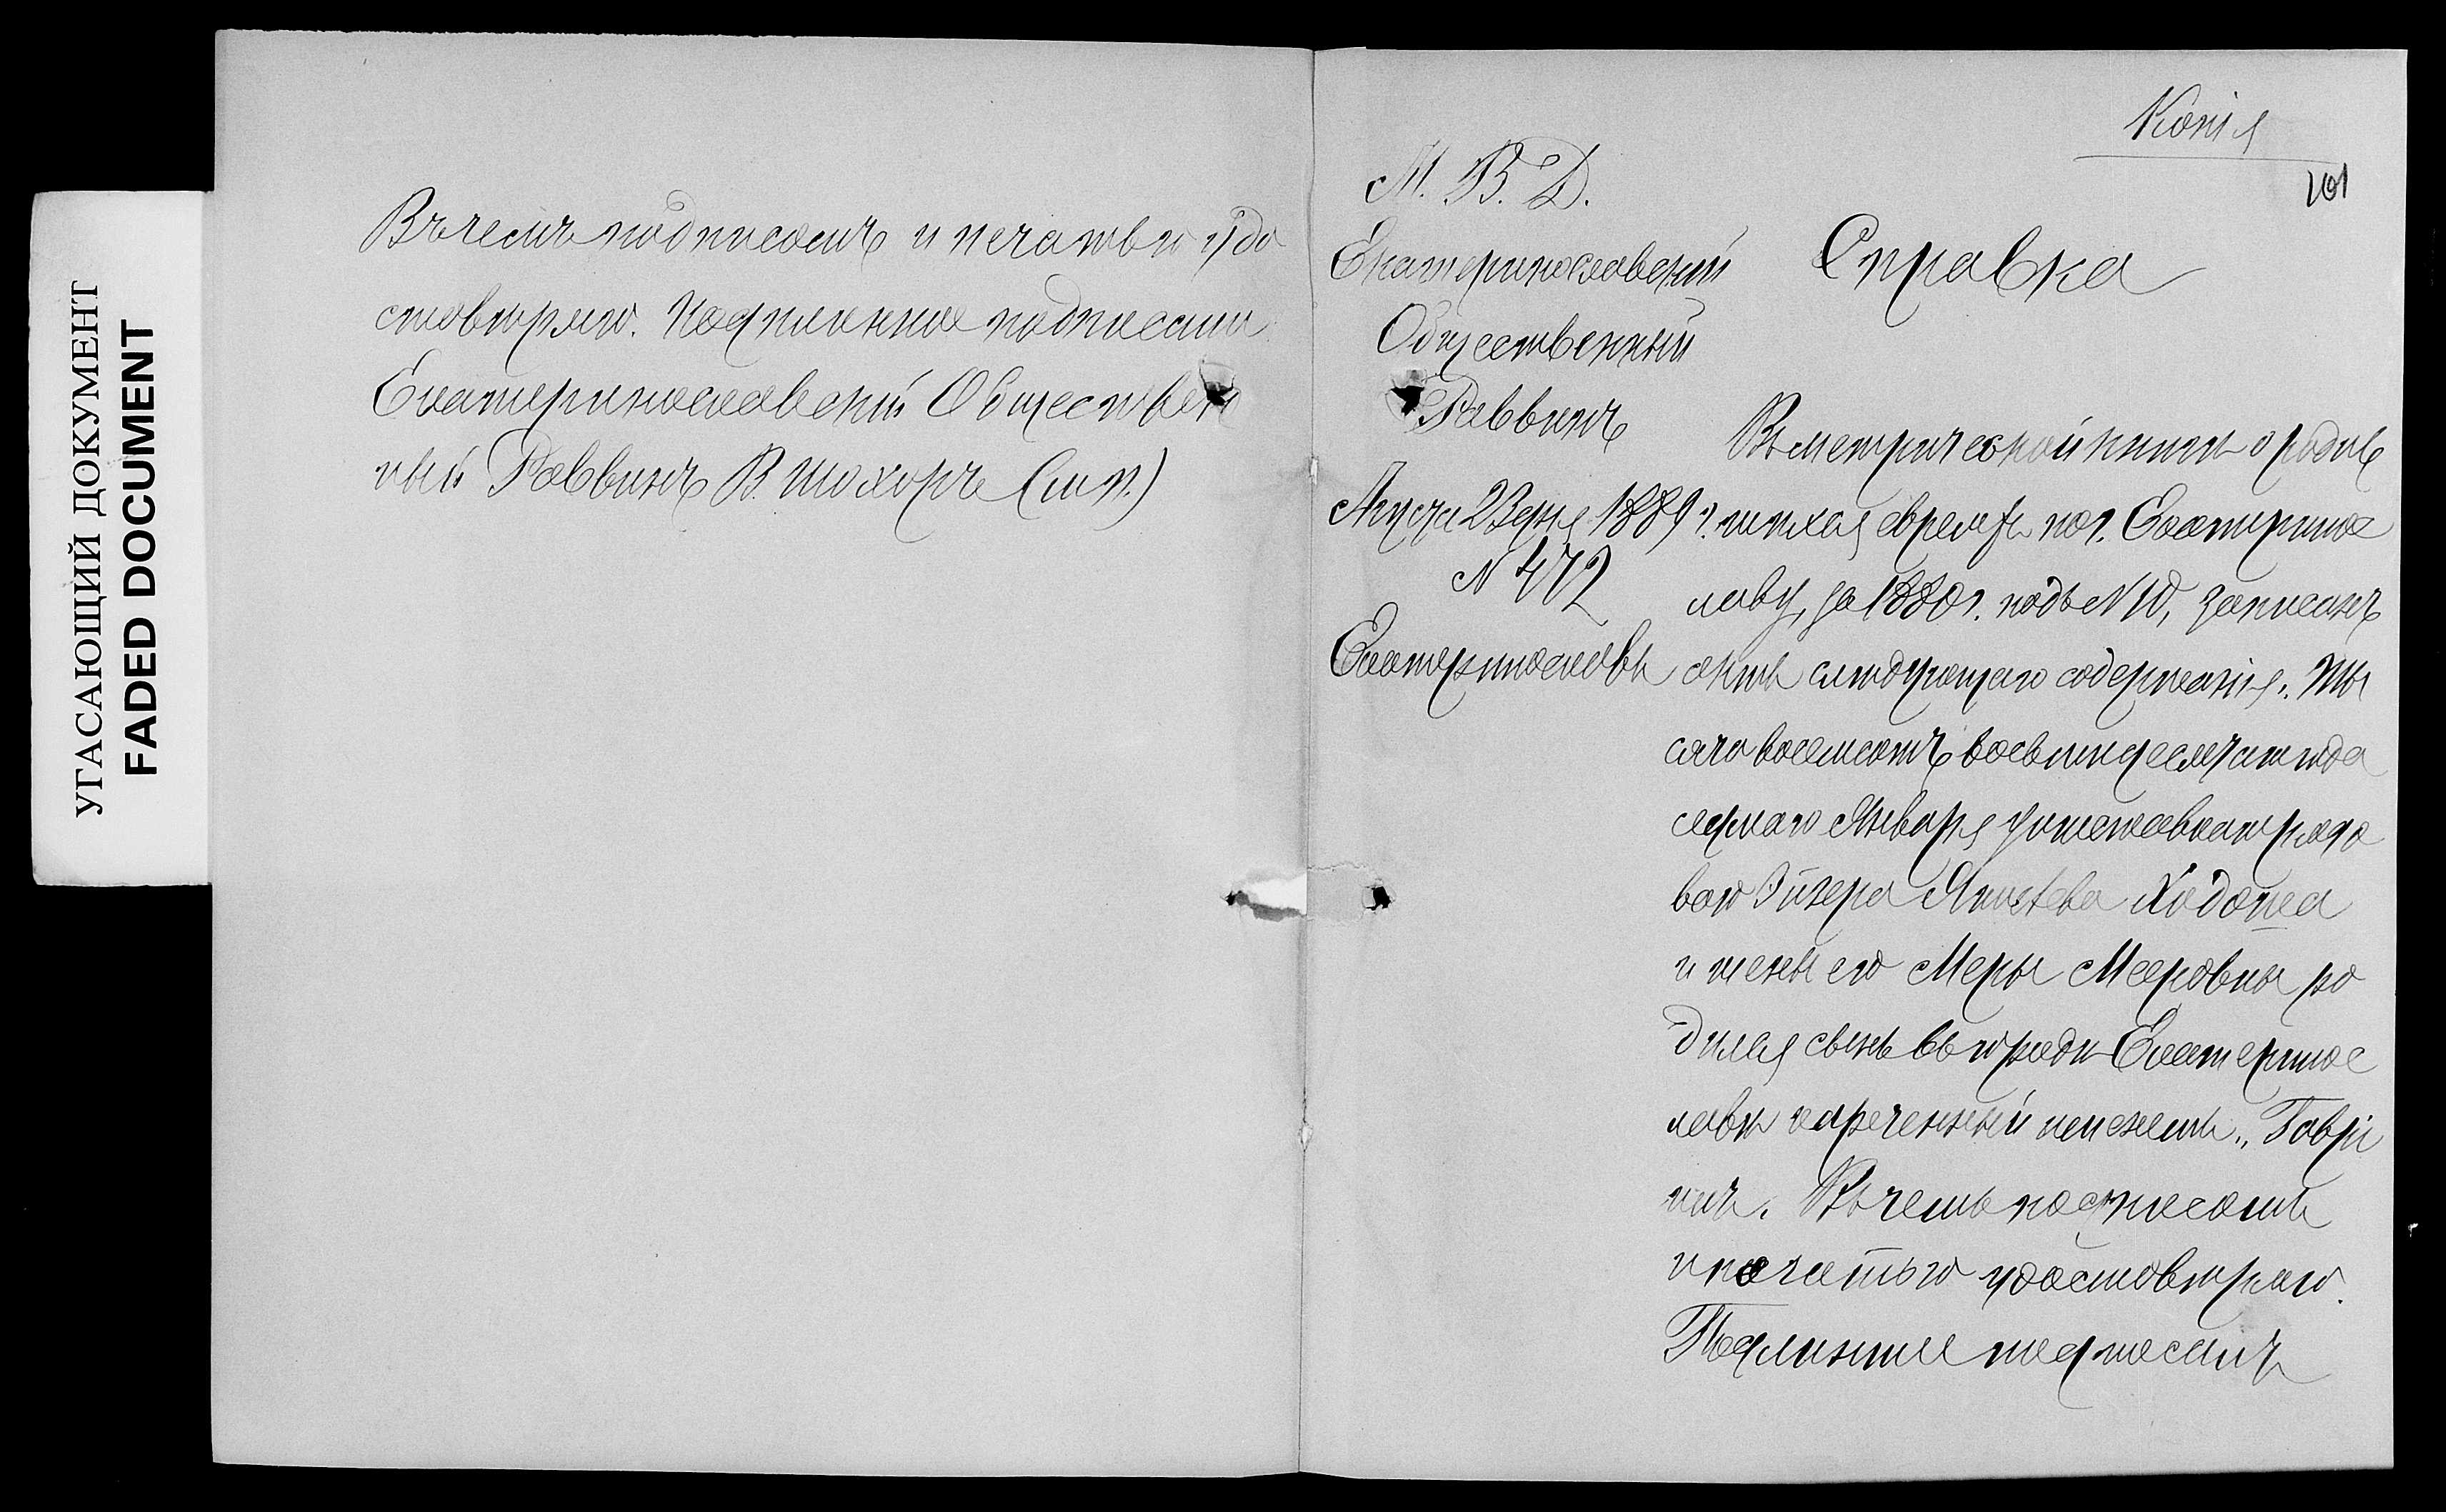 УГАСАЮЩИЙ ДОКУМЕНТ
FADED DOCUMENT
Въ чемъ подписомъ и печатью удо
стовѣряю. Подлинное подписали
Екатеринославскій Обществен
ный Раввинъ В. Шахоръ (м. п.)
Копія
101
М. В. Д.
Екатеринославскій
Общественный
Раввинъ
Августа 23 дня 1889 г.
№ 472
Екатеринославъ
Справка
Въ метрической книгѣ о родив
шихся евреяхъ по г. Екатеринос
лаву, за 1880 г. подъ № 10, записанъ
актъ слѣдующаго содержанія: Ты
сяча восемсотъ восьмидесятаго года
седьмаго Января у рядо
ваго Эйзера Ходоша
и жены его Меры Мееровны ро
дился сынъ въ городѣ Екатеринос
лавѣ нареченный именемъ „Гаврі
илъ. Въ чемъ подписомъ
и печатью удостовѣряю.
Подлинное подписалъ